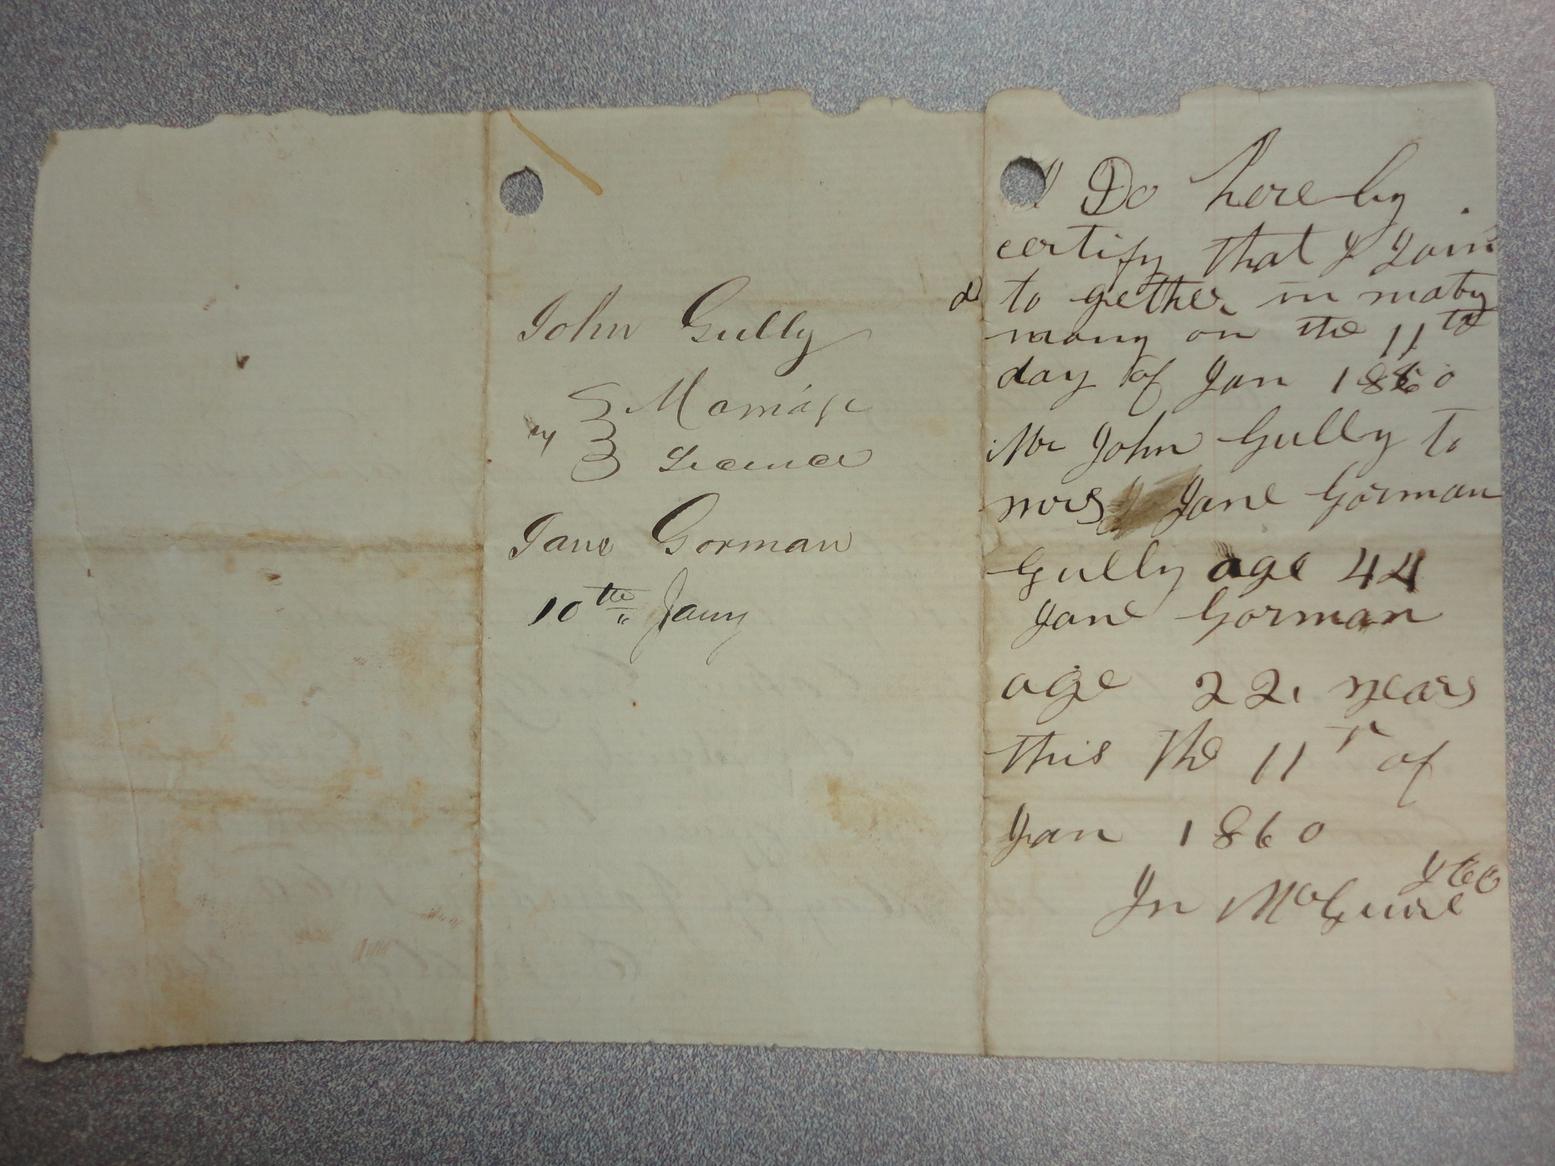 John Gully
Marriage
Licence
Jane Gorman
10th Jany
I Do hereby
certify that I Join
d to gether in matry
mony on the 11th
day of Jan 1860
Mr John Gully to
mrs Jane Gorman
Gully age 44
Jane Gorman
age 22. years
this the 11th of
Jan 1860
Jn McGuire